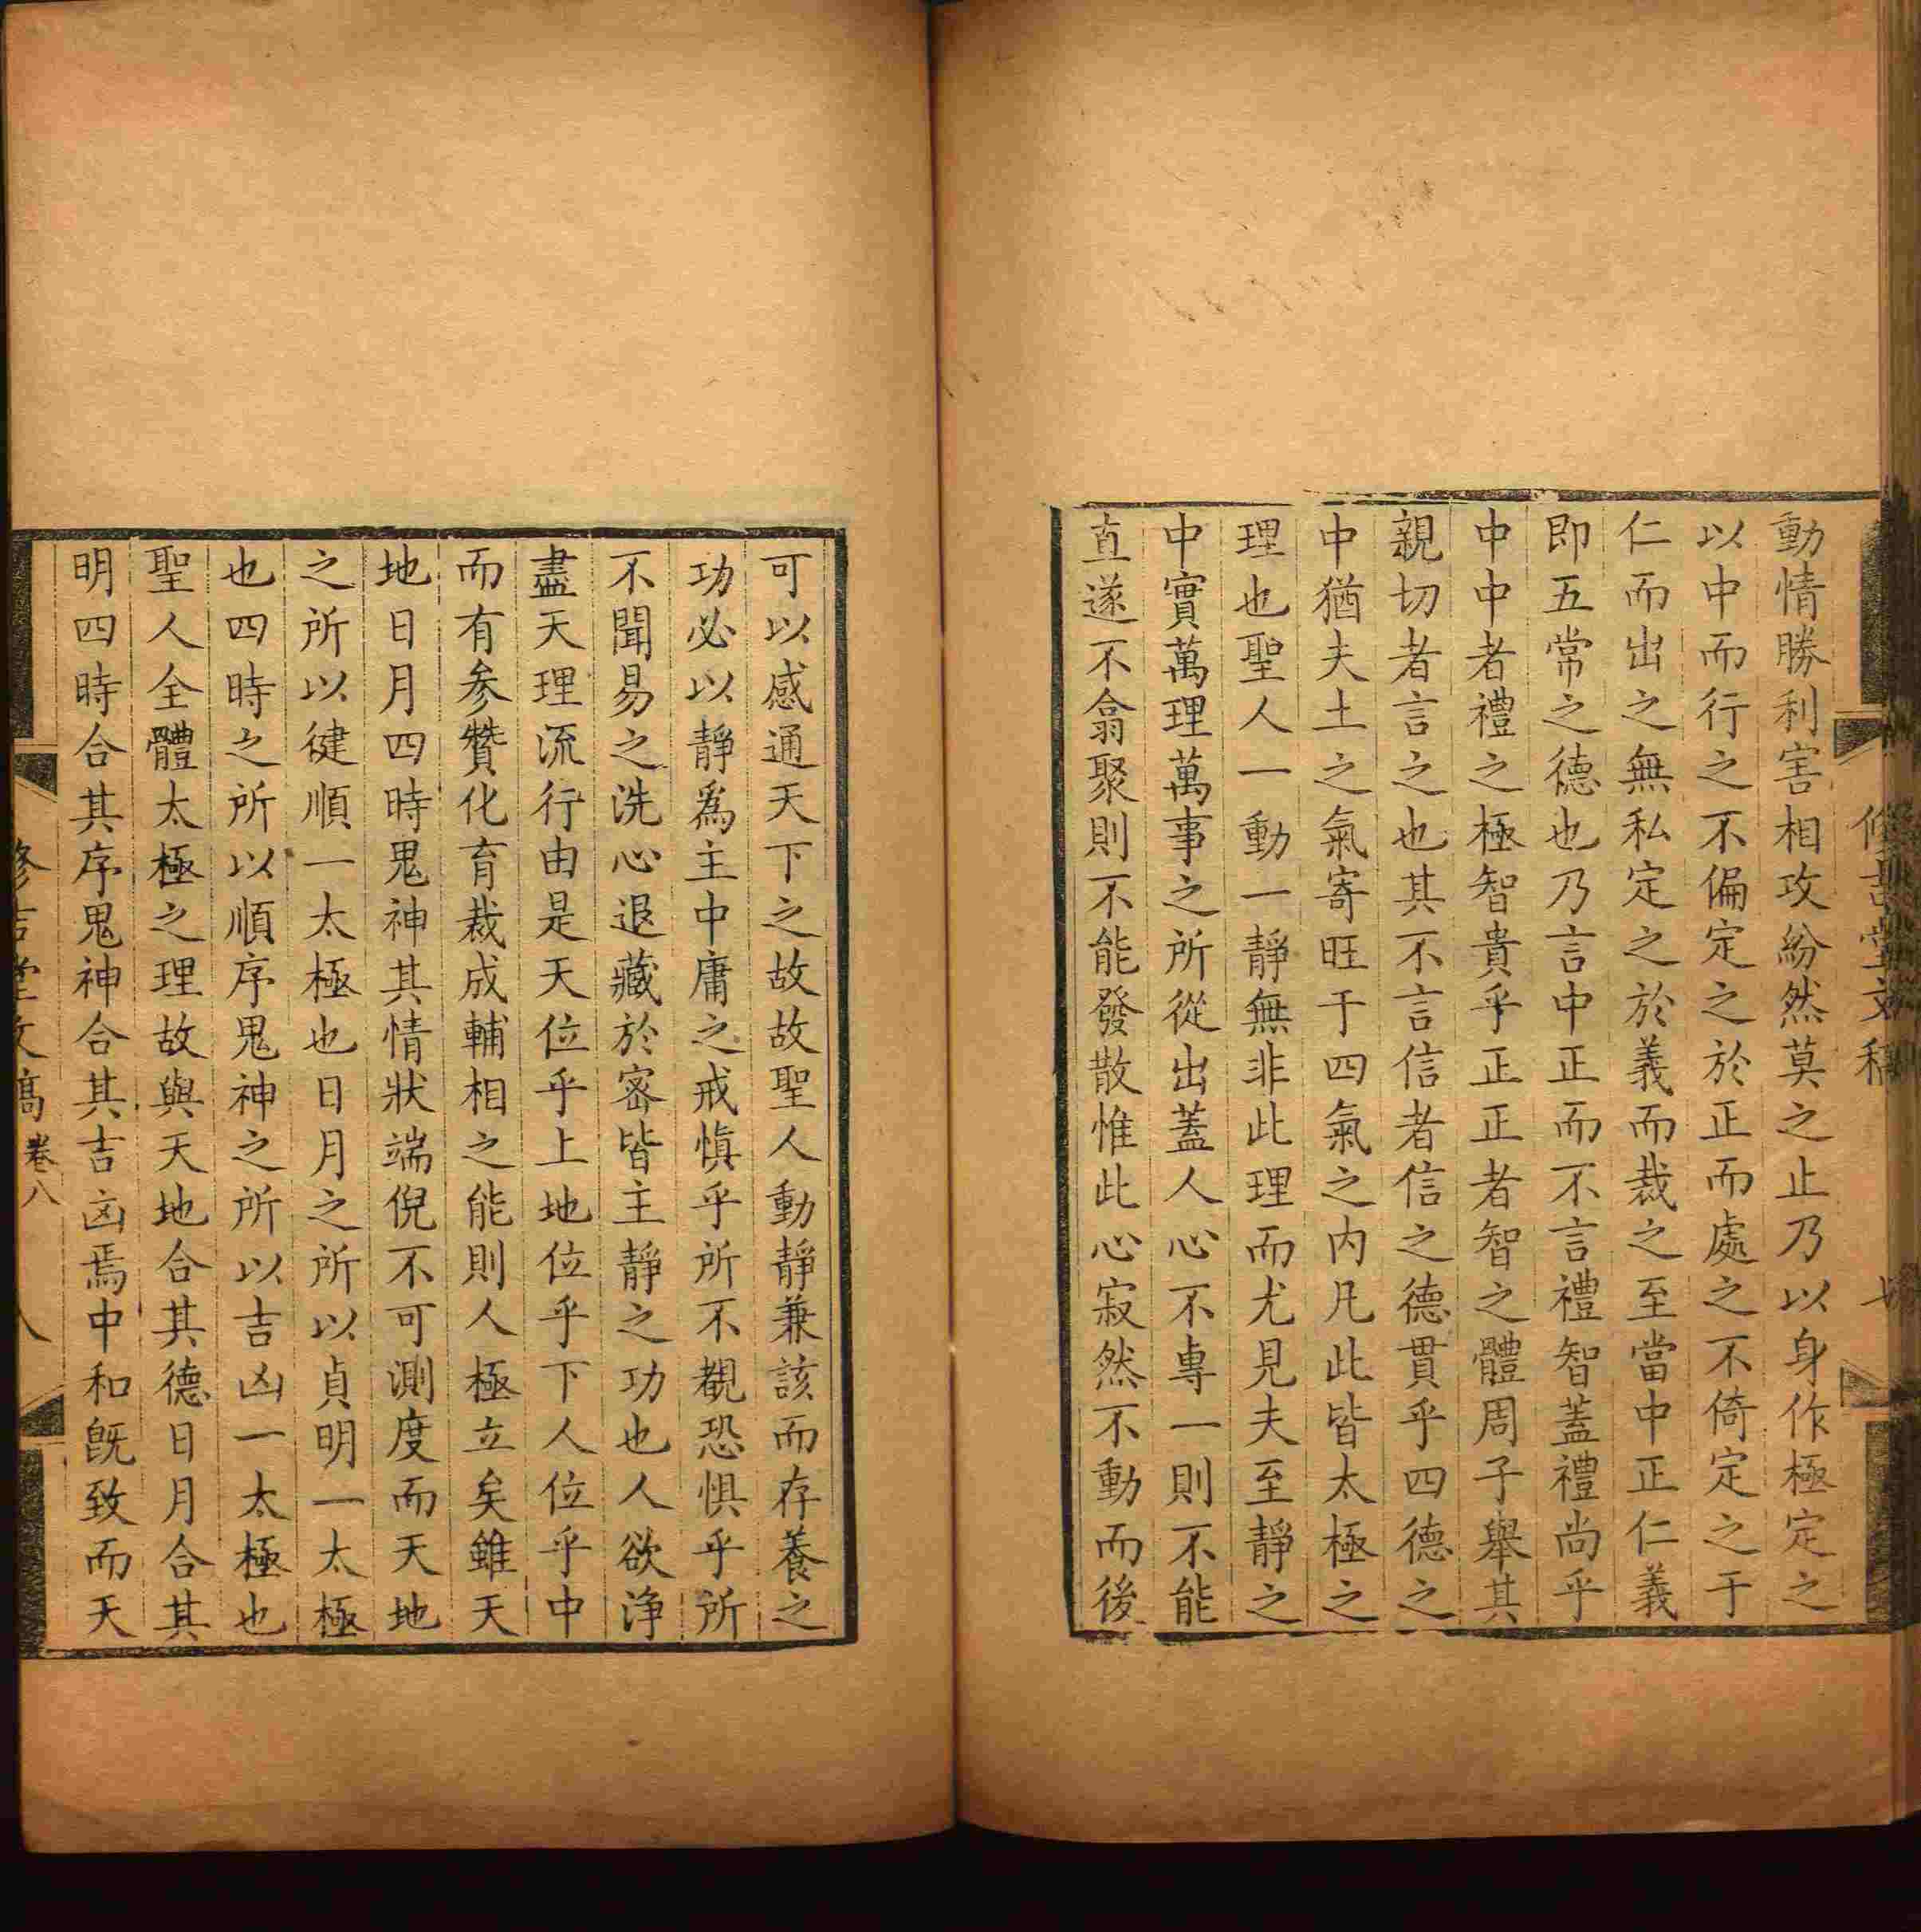 動情勝利害相攻紛然莫之止乃以身作極定之
以中而行之不偏定之於正而處之不倚定之于
仁而出之無私定之於義而裁之至當中正仁義
即五常之德也乃言中正而不言禮智蓋禮尚乎
中中者禮之極智貴乎正正者智之體周子舉其
親切者言之也其不言信者信之德貫乎四德之
中猶夫土之氣寄旺于四氣之內凡此皆太極之
理也聖人一動一靜無非此理而尤見夫至靜之
中實萬理萬事之所從出蓋人心不專一則不能
直遂不翕聚則不能發散惟此心寂然不動而後
可以感通天下之故故聖人動靜兼該而存養之
功必以靜爲主中庸之戒慎乎所不覩恐惧乎所
不聞易之洗心退藏於密皆主靜之功也人欲浄
盡天理流行由是天位乎上地位乎下人位乎中
而有参贊化育裁成輔相之能則人極立矣雖天
地日月四時鬼神其情狀端倪不可測度而天地
之所以健順一太極也日月之所以貞明一太極
也四時之所以順序鬼神之所以吉凶一太極也
聖人全體太極之理故與天地合其德日月合其
明四時合其序鬼神合其吉凶焉中和旣致而天
卷八
八